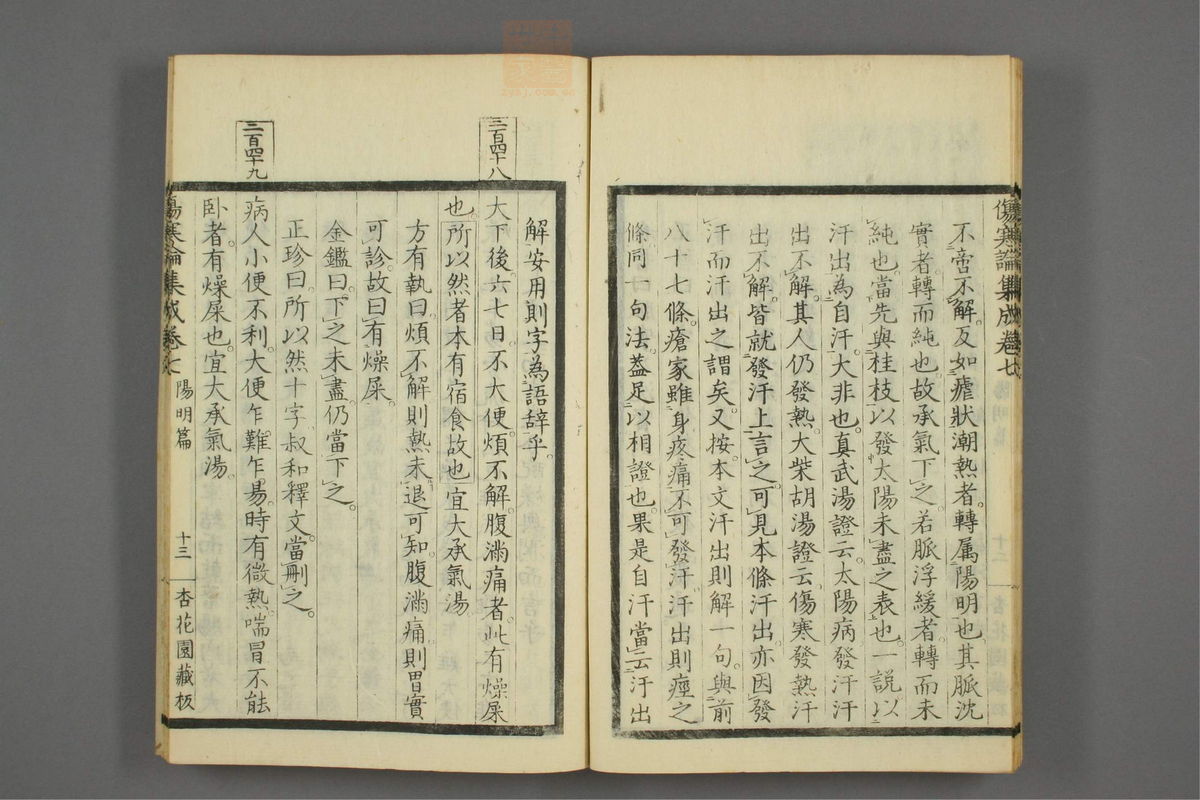 傷寒論集成卷七
不啻不解反如瘧狀潮熱者轉属陽明也其脈沈
實者轉而純也故承氣下之若脈浮緩者轉而未
純也當先與桂枝以發太陽未盡之表也一說以
汗出為自汗大非也真武湯證云太陽病發汗汗
出不解其人仍發熱大柴胡湯證云傷寒發熱汗
出不解皆就發汗上言之可見本條汗出亦因發
汗而汗出之謂矣又按本文汗出則解一句與前
八十七條瘡家雖身疼痛不可發汗汗出則痙之
條同一句法蓋足以相證也果是自汗當云汗出
解安用則字為語辭乎
三百四十八
大下後六七日不大便煩不解腹滿痛者此有燥屎
也所以然者本有宿食故也宜大承氣湯
方有執曰煩不解則熱未退可知腹滿痛則胃實
可診故曰有燥屎
金鑑曰下之未盡仍當下之
正珍曰所以然十字叔和釋文當刪之
三百四十九
病人小便不利大便乍難乍易時有微熱喘冒不能
卧者有燥屎也宜大承氣湯
傷寒論集成卷七 陽明篇 十三 杏花園藏板